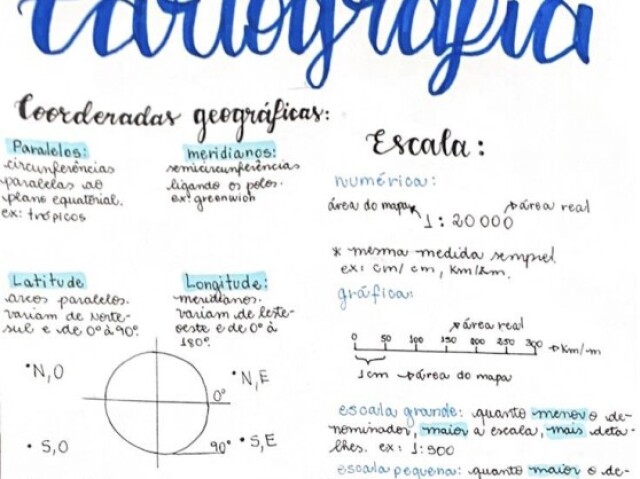 Cartografia
Coordenadas geográficas:
Paralelos:
circunferências
paralelas ao
plano equatorial.
ex: trópicos
meridianos:
semicircunferências
ligando os polos.
ex: greenwich
Latitude
arcos paralelos.
variam de norte-
sul e de 0° à 90°.
Longitude:
meridianos.
variam de leste-
oeste e de 0° à
180°.
• N, O
• N, E
0°
• S, O
90°
• S, E
Escala:
numérica:
área do mapa
área real
1 : 20 000
* mesma medida sempre!
ex: cm/cm, km/km.
gráfica:
área real
0 50 100 150 200 250 300
km/m
1cm → área do mapa
escala grande: quanto menor o de-
nominador, maior a escala, mais deta-
lhes. ex: 1:500
escala pequena: quanto maior o de-